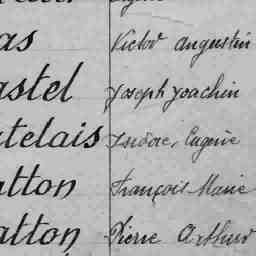 as Victor Augustin
astel Joseph Joachin
telais Isidore, Eugène
atton François Marie
atton Pierre Arthur